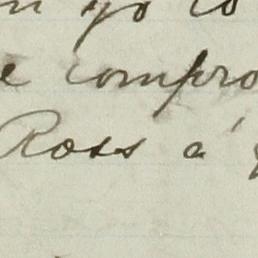 yo co
e compro
Ross á